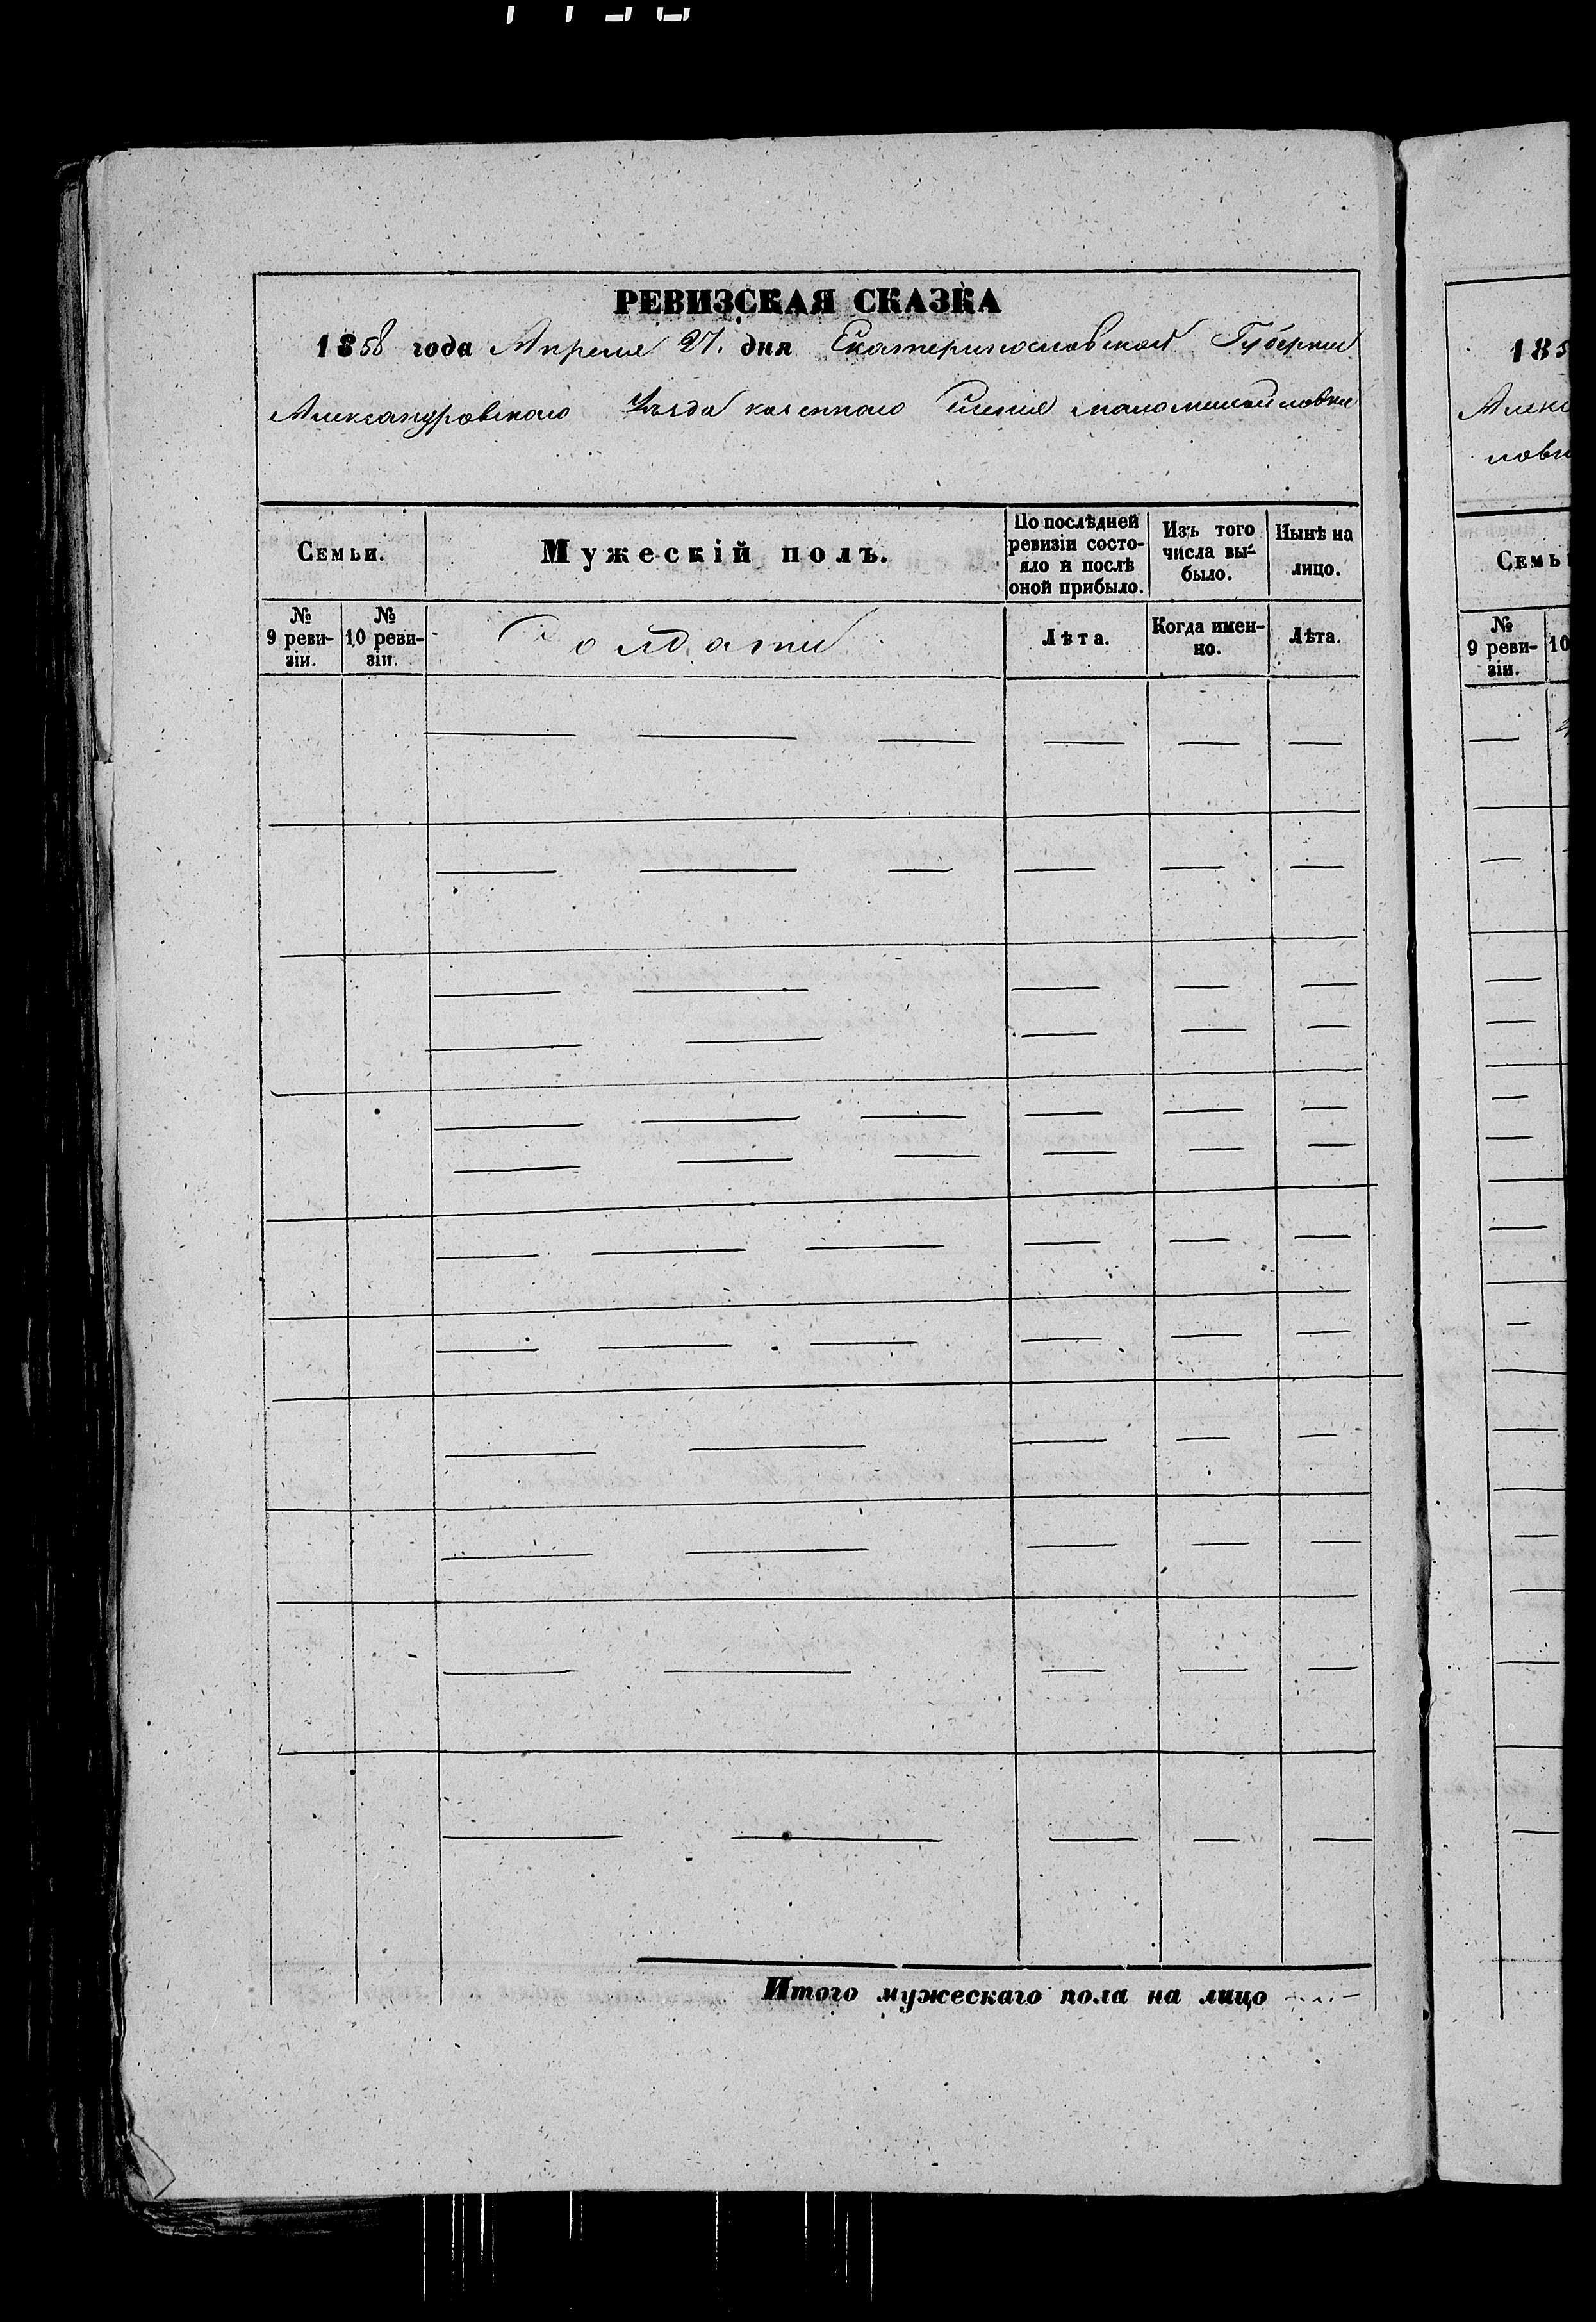 РЕВИЗСКАЯ СКАЗКА
1858 года Апреля 27. дня Екатеринославской Губернии
Александровского Уезда казенного селения маломихайловки
Семьи.
Мужескій полъ.
По послѣдней
ревизіи состо-
яло и послѣ
оной прибыло.
Изъ того
числа вы-
было.
Нынѣ на
лицо.
№
9 реви-
зіи.
№
10 реви-
зіи.
Солдати
Лѣта.
Когда имен-
но.
Лѣта.
Итого мужескаго пола на лицо
185
Алекс
ловк
Семь
№
9 реви-
зіи.
10